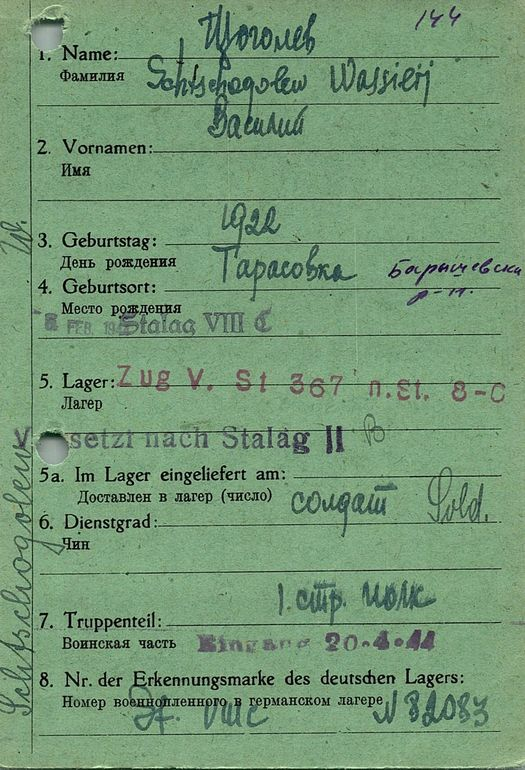 144
Щоголев
1. Name:
Фамилия
Schtschogolew Wassilij
Василий
2. Vornamen:
Имя
1922
3. Geburtstag:
День рождения
Тарасовка Барышевски
4. Geburtsort: р-н.
Место рождения
FEB. Stalag VIII C
5. Lager: Zug V. St 367 n.St. 8-C
Лагер
setzt nach Stalag II B
5a. Im Lager eingeliefert am:
Доставлен в лагер (число)
солдат Sold.
6. Dienstgrad:
Чин
1. стр. полк
7. Truppenteil:
Воинская часть Eingang 20.4.44
8. Nr. der Erkennungsmarke des deutschen Lagers:
Номер военнопленного в германском лагере
VIIIC N 82083
Schtschogolew W.